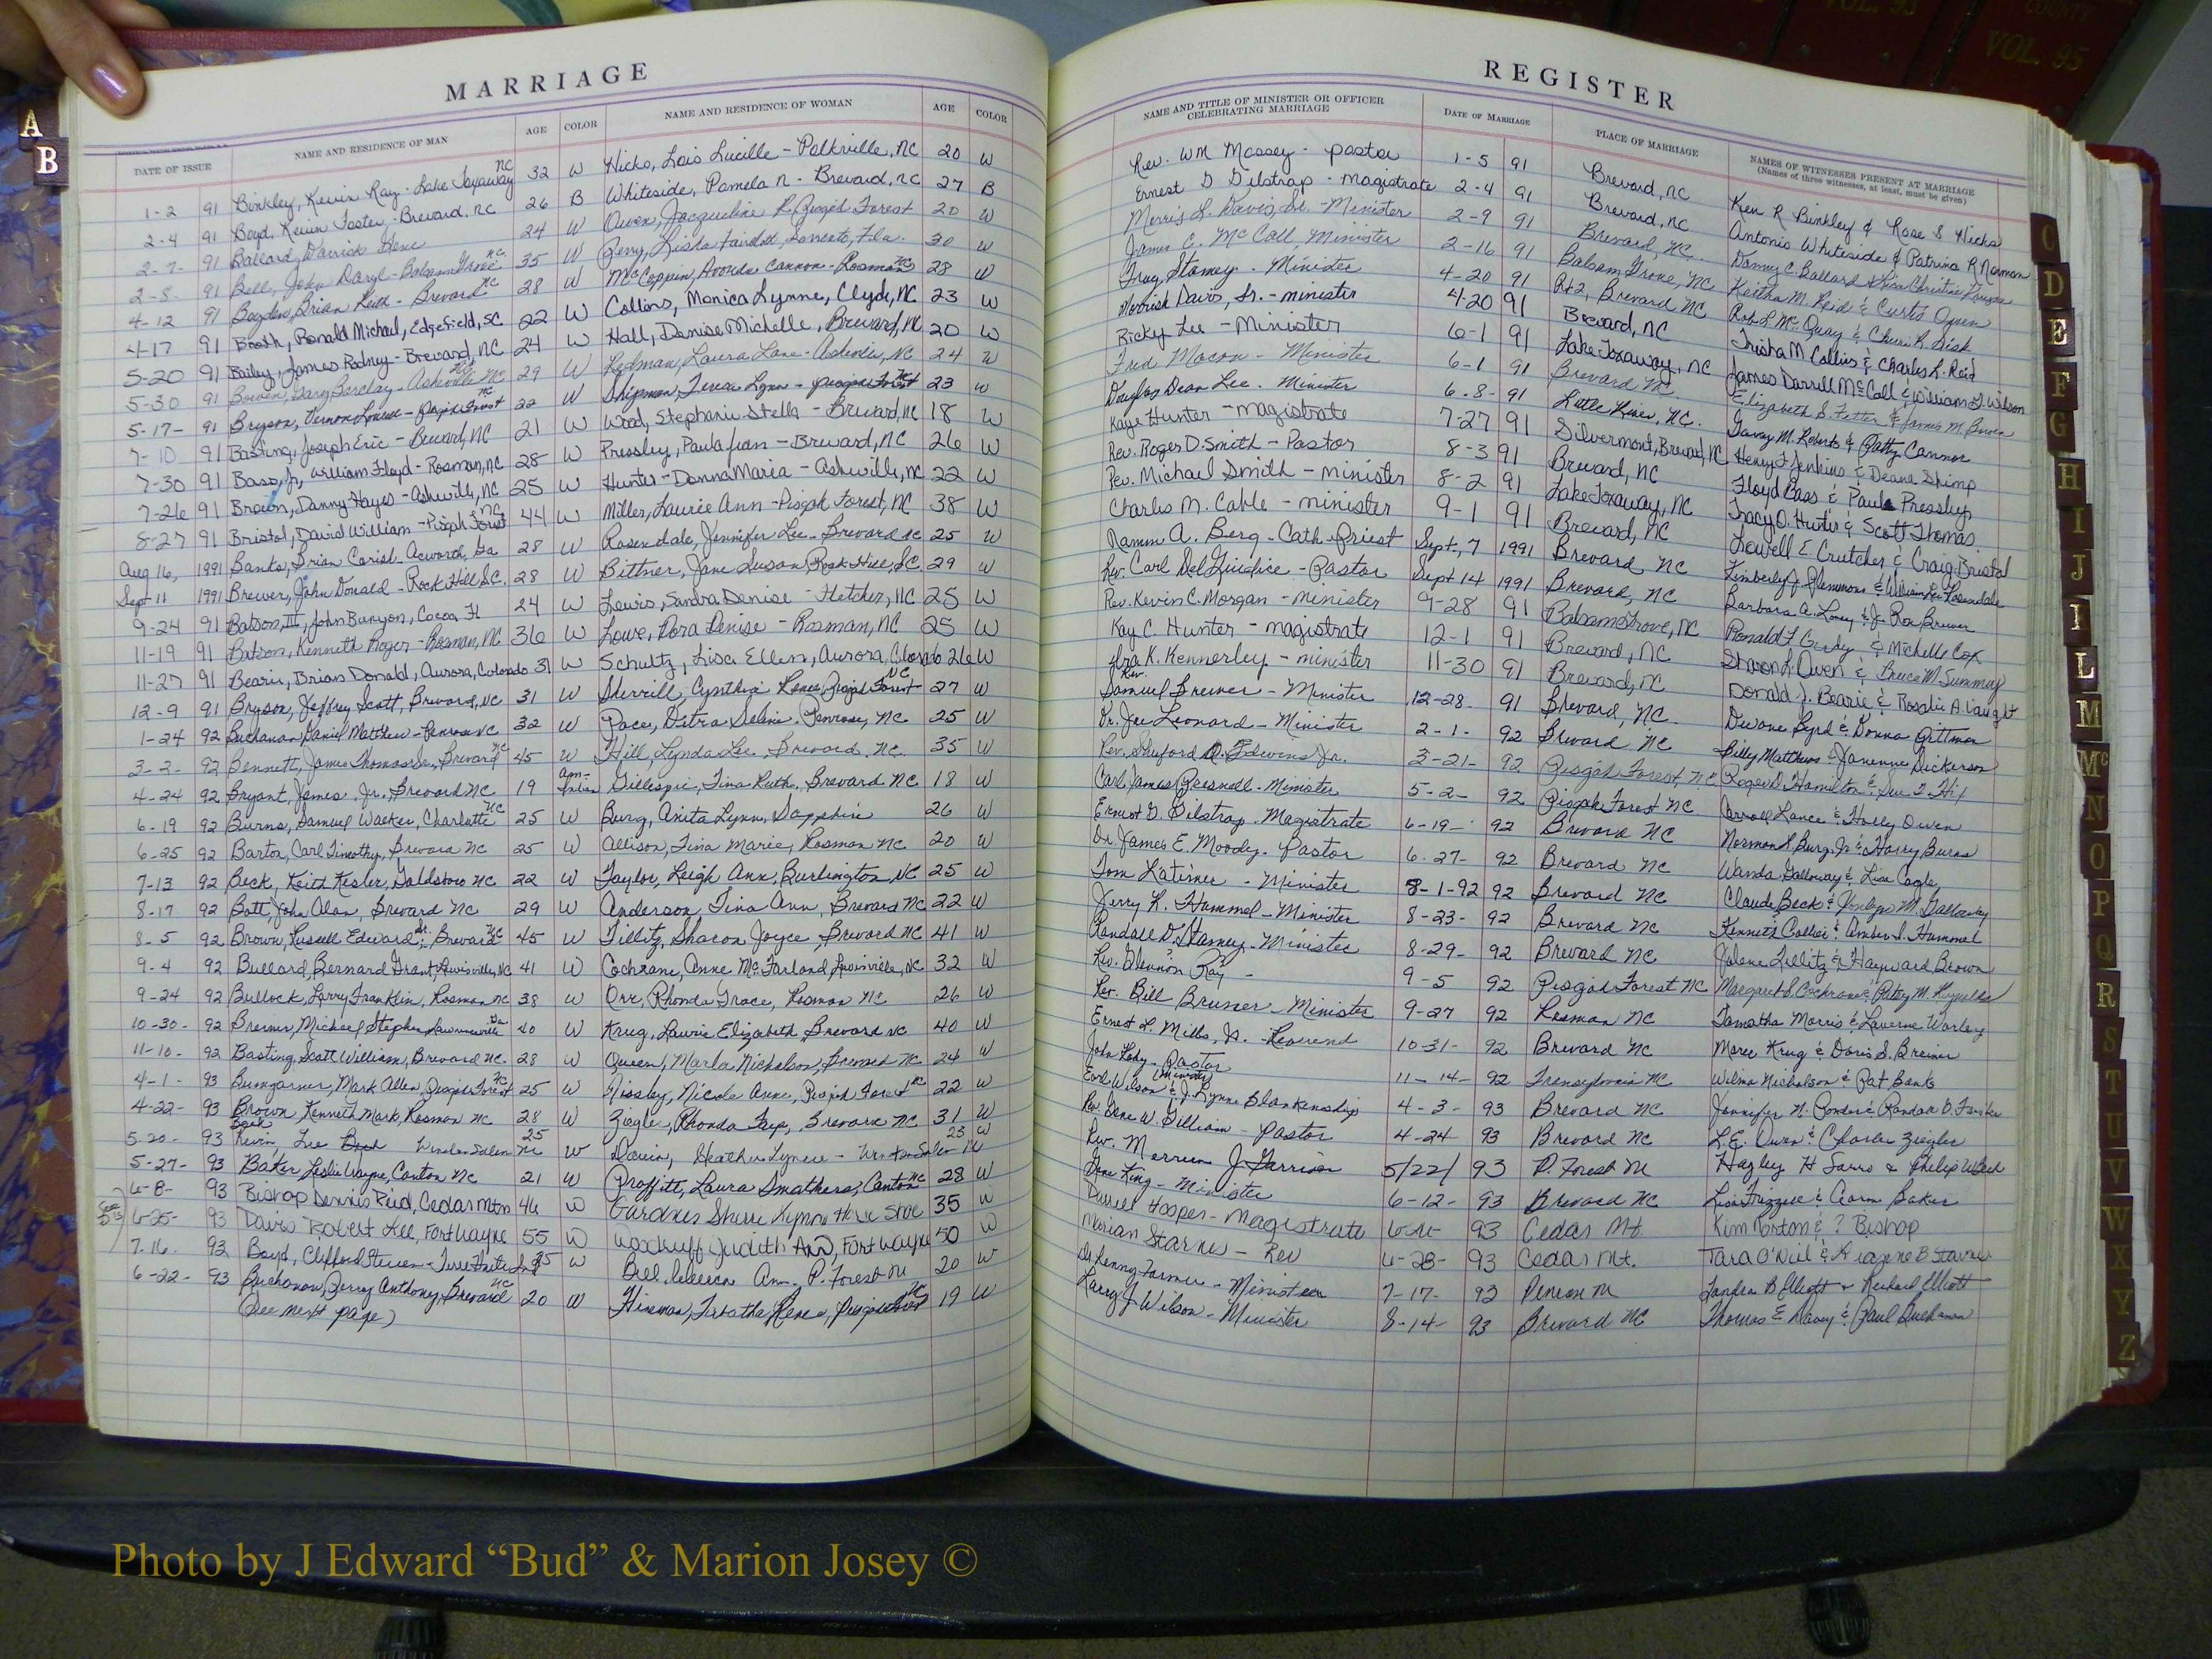 COUNTY
VOL. 93
VOL. 95
A
B
MARRIAGE
DATE OF ISSUE NAME AND RESIDENCE OF MAN AGE COLOR NAME AND RESIDENCE OF WOMAN AGE COLOR
1-2 91 Binkley, Kevin Ray - Lake Toxaway NC 32 W Hicks, Lois Lucille - Polkville, NC 20 W
2-4 91 Boyd, Kevin Foster - Brevard, NC 26 B Whiteside, Pamela N - Brevard, NC 27 B
2-7- 91 Ballard Darrick Gene 24 W Owen, Jacqueline R. Pisgah Forest 20 W
2-8- 91 Bell, John Daryl - Balsam Grove NC 35 W Perry, Lisha Sorrento, Fla. 30 W
4-12 91 Brian Keith - Brevard NC 28 W Avonda Cannon - Rosman NC 28 W
4-17 91 Booth, Ronald Michael, Edgefield, SC 22 W Collins, Monica Lynne, Clyde, NC 23 W
5-20 91 Bailey, James Rodney - Brevard, NC 24 W Hall, Denise Michelle, Brevard, NC 20 W
5-30 91 Bowen, Gary Barclay - Asheville NC 29 W Redman, Laura Lane - Asheville, NC 24 W
5-17- 91 Bryson, Vernon - Pisgah Forest NC 22 W Shipman, Teresa Lynn - Pisgah Forest NC 23 W
7-10 91 Basting, Joseph Eric - Brevard, NC 21 W Wood, Stephanie Stella - Brevard, NC 18 W
7-30 91 Bass, Jr, William Floyd - Rosman, NC 28 W Pressley, Paula Jean - Brevard, NC 26 W
7-26 91 Brown, Danny Hayes - Asheville, NC 25 W Hunter - Donna Maria - Asheville, NC 22 W
8-27 91 Bristol, David William - Pisgah Forest NC 44 W Miller, Laurie Ann - Pisgah Forest, NC 38 W
Aug 16, 1991 Banks, Brian Acworth, Ga 28 W Rosendale, Jennifer Lee - Brevard NC 25 W
Sept 11 1991 Brewer, John Donald - Rock Hill S.C. 28 W Bittner, Jane Susan, Rock Hill, S.C. 29 W
9-24 91 Batson, III, John Bunyon, Cocoa, Fl 24 W Lewis, Sandra Denise - Fletcher, NC 25 W
11-19 91 Batson, Kenneth Roger - Rosman, NC 36 W Lowe, Dora Denise - Rosman, NC 25 W
11-27 91 Bearie, Brian Donald, Aurora, Colorado 31 W Schultz, Lisa Ellen, Aurora, Colorado 26 W
12-9 91 Bryson, Jeffrey Scott, Brevard, NC 31 W Sherrill, Cynthia Renee, Pisgah Forest NC 27 W
1-24 92 Buchanan, Daniel Matthew - Penrose NC 32 W Pace, Penrose, NC. 25 W
3-2- 92 Bennett, James Thomas Sr., Brevard NC 45 W Hill, Lynda Lee, Brevard, NC. 35 W
4-24 92 Bryant, James, Jr., Brevard NC 19 Am-Indian Gillespie, Tina Ruth, Brevard NC 18 W
6-19 92 Burns, Samuel Walker, Charlotte NC 25 W Burg, Anita Lynn, Sapphire 26 W
6-25 92 Barton, Carl Timothy, Brevard NC 25 W Allison, Tina Marie, Rosman NC 20 W
7-13 92 Beck, Keith Kesler, Goldsboro NC 22 W Taylor, Leigh Ann, Burlington NC 25 W
8-17 92 Batt, John Alan, Brevard NC 29 W Anderson, Tina Ann, Brevard NC 22 W
8-5 92 Brown, Russell Edward Sr., Brevard NC 45 W Tillitz, Sharon Joyce, Brevard NC 41 W
9-4 92 Bullard, Bernard Grant, Lewisville, NC 41 W Cochrane, Anne McFarland, Lewisville, NC 32 W
9-24 92 Bullock, Larry Franklin, Rosman NC 38 W Orr, Rhonda Grace, Rosman NC 26 W
10-30- 92 Breiner, Michael Stephen Lawrenceville Ga 40 W Krug, Laurie Elizabeth, Brevard NC 40 W
11-10- 92 Basting, Scott William, Brevard NC. 28 W Queen, Marla Nicholson, Brevard NC. 24 W
4-1- 93 Bumgarner, Mark Allen, Pisgah Forest NC 25 W Nicole Anne, Pisgah Forest NC 22 W
4-22- 93 Brown Kenneth Mark, Rosman NC 28 W Ziegler, Rhonda Faye, Brevard NC 31 W
5-20- 93 Kevin Lee Winston Salem 25 W Heather Lynne - Winston Salem NC 23 W
5-27- 93 Baker Leslie Wayne, Canton NC 21 W Proffitt, Laura Smathers, Canton NC 28 W
6-8- 93 Bishop Dennis Reid, Cedar Mtn 46 W Gardner Sherri 35 W
6-25- 93 Davis Robert Lee, Fort Wayne 55 W Woodruff Judith Ann, Fort Wayne 50 W
7-16- 93 Boyd, Clifford Steven - Terre Haute In 35 W Bell, Rebecca Ann - P. Forest NC 20 W
6-22- 93 Buchanan, Jerry Anthony, Brevard NC 20 W Hinsman, Tabatha Renea, Pisgah Forest NC 19 W
(See next page)
REGISTER
NAME AND TITLE OF MINISTER OR OFFICER CELEBRATING MARRIAGE DATE OF MARRIAGE PLACE OF MARRIAGE NAMES OF WITNESSES PRESENT AT MARRIAGE
(Names of three witnesses, at least, must be given)
Rev. WM Massey - pastor 1-5 91 Brevard, NC Ken R Binkley & Rose S Hicks
Ernest G Gilstrap - magistrate 2-4 91 Brevard, NC Antonio Whiteside & Patrina R Norman
Merris L. Davis, Sr. - Minister 2-9 91 Brevard, NC. Danny C. Ballard &
James E. McCall, Minister 2-16 91 Balsam Grove, NC Keitha M. Reid & Curtis Owen
Tracy Stamey - Minister 4-20 91 Rt 2, Brevard NC Rob L McQuay & Cheri R. Sisk
Merrick Davis, Sr. - minister 4-20 91 Brevard, NC Trisha M Collins & Charles L. Reid
Ricky Lee - Minister 6-1 91 Lake Toxaway, NC James Darrell McCall & William G. Wilson
Fred Macon - Minister 6-1 91 Brevard NC. Elizabeth S. & James M. Bowen
Douglas Dean Lee - Minister 6-8- 91 Little River, NC. M. Roberts & Patty Cannon
Kaye Hunter - magistrate 7-27 91 Silvermont, Brevard, NC Henry F Jenkins & Deane Shimp
Rev. Roger D. Smith - Pastor 8-3 91 Brevard, NC Floyd Bass & Paula Pressley
Rev. Michael Smith - minister 8-2 91 Lake Toxaway, NC Tracy O. Hunter & Scott Thomas
Charles M. Cable - minister 9-1 91 Brevard, NC Lowell E. Crutcher & Craig Bristol
A. Berg - Cath. Priest Sept, 7 1991 Brevard NC Kimberly J. Plemmons & William Lee Rosendale
Rev. Carl DelGiudice - Pastor Sept 14 1991 Brevard, NC Barbara A. Loney & J. Ron Brewer
Rev. Kevin C. Morgan - minister 9-28 91 Balsam Grove, NC Ronald & Michelle Cox
Kay C. Hunter - magistrate 12-1 91 Brevard, NC Sharon L. Owen & Bruce M Summey
Rev. Ira K. Kennerley - minister 11-30 91 Brevard, NC Donald J. Bearie & Rosalie A. Vaught
Samuel Brewer - Minister 12-28- 91 Brevard, NC. Dwane Byrd & Donna Gittman
Dr. Joe Leonard - Minister 2-1- 92 Brevard NC Billy Matthews & Dickerson
Rev. Shuford Jr. 3-21- 92 Pisgah Forest, NC Roger D. Hamilton &
Carl James Presnell - Minister 5-2- 92 Pisgah Forest NC. Carroll Lance & Holly Owen
Ernest G. Gilstrap - Magistrate 6-19- 92 Brevard NC Norman L. Burg, Jr & Harry Burns
Dr. James E. Moody - Pastor 6-27- 92 Brevard NC Wanda Galloway & Lisa Cagle
Tom Latimer - Minister 8-1-92 92 Brevard NC Claude Beck & M. Galloway
Jerry R. Hammel - Minister 8-23- 92 Brevard NC Kenneth Collier & Amber S. Hammel
Randall D. Stamey - Minister 8-29- 92 Brevard NC Jolene Tillitz & Hayward Brown
Rev. Glennon Ray - 9-5 92 Pisgah Forest NC Margaret S. Cochrane & Patsy M. Reynolds
Rev. Bill Bruner - Minister 9-27 92 Rosman NC Tamatha Morris & Laverne Worley
Ernest L. Mills, Jr. - Reverend 10-31- 92 Brevard NC Maree Krug & Doris S. Breiner
John - Pastor 11-14- 92 Transylvania NC Wilma Nicholson & Pat Banks
Earl Wilson & J. Lynne Blankenship 4-3- 93 Brevard NC Jennifer N. Ponder &
Rev. Gene W. Gilliam - Pastor 4-24 93 Brevard NC L.E. Owen & Charles Ziegler
Rev. Merrium J. Garrison 5/22/ 93 P. Forest NC Hagley H & Philip
Gene King - Minister 6-12- 93 Brevard NC Lisa Frizzell & Aaron Baker
Darrell Hooper - Magistrate 93 Cedar Mt. Kim Norton & ? Bishop
Marian Starnes - Rev 6-28- 93 Cedar Mt. Tara O'Neil & B Starnes
Dr. Kenny Farmer - Minister 7-17- 93 Penrose NC Sandra B Elliott & Richard Elliott
Larry J Wilson - Minister 8-14- 93 Brevard NC Thomas E Davey & Paul Buchanan
C
D
E
F
G
H
I
J
L
M
Mc
N
O
P
Q
R
S
T
U
V
W
X
Y
Z
Photo by J Edward “Bud” & Marion Josey ©